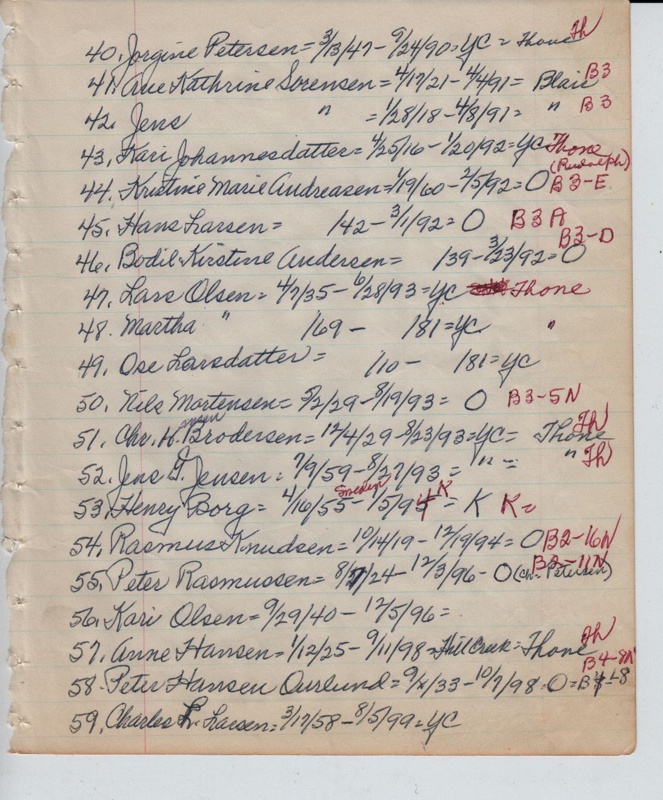 40. Jorgine Petersen = 3/13/47 - 9/24/90 = YC = Thone Th
41. Ane Kathrine Sorensen = 4/17/21 - 4/4/91 = Blair B3
42. Jens " = 1/28/18 - 4/8/91 = " B3
43. Kari Johannesdatter = 4/25/16 - 1/20/92 = YC Thone
(Rudolph)
44. Kristine Marie Andreasen = 1/19/60 - 2/5/92 = O B3-E
45. Hans Larsen = /42 - 3/1/92 = O B3A
46. Bodil Kirstine Andersen = /39 - 3/23/92 = O B3-D
47. Lars Olsen = 4/7/35 - 6/28/93 = YC Thone
48. Martha " /69 - /81 = YC "
49. Ose Larsdatter = /10 - /81 = YC
50. Nils Mortensen = 5/2/29 - 8/19/93 = O B3-5N
51. Chr. H. Brodersen = 12/4/29 - 8/23/93 = YC = Thone Th
52. Jens J. Jensen = 7/9/59 - 8/27/93 = " = " Th
53. Henry Borg = 4/16/55 - 1/5/94 = K K=
Sweden K
54. Rasmus Knudsen = 10/14/19 - 12/19/94 = O B2-16N
55. Peter Rasmussen = 8/7/24 - 12/3/96 - O (ch. Petersen) B2-11N
56. Kari Olsen = 9/29/40 - 12/5/96 =
57. Anne Hansen = 1/12/25 - 9/11/98 = Hill Creek = Thone Th
58. Peter Hansen Ourlund = 9/4/33 - 10/7/98 - O = B4-8 B4-8N
59. Charles L. Larsen = 3/17/58 - 8/5/99 = YC